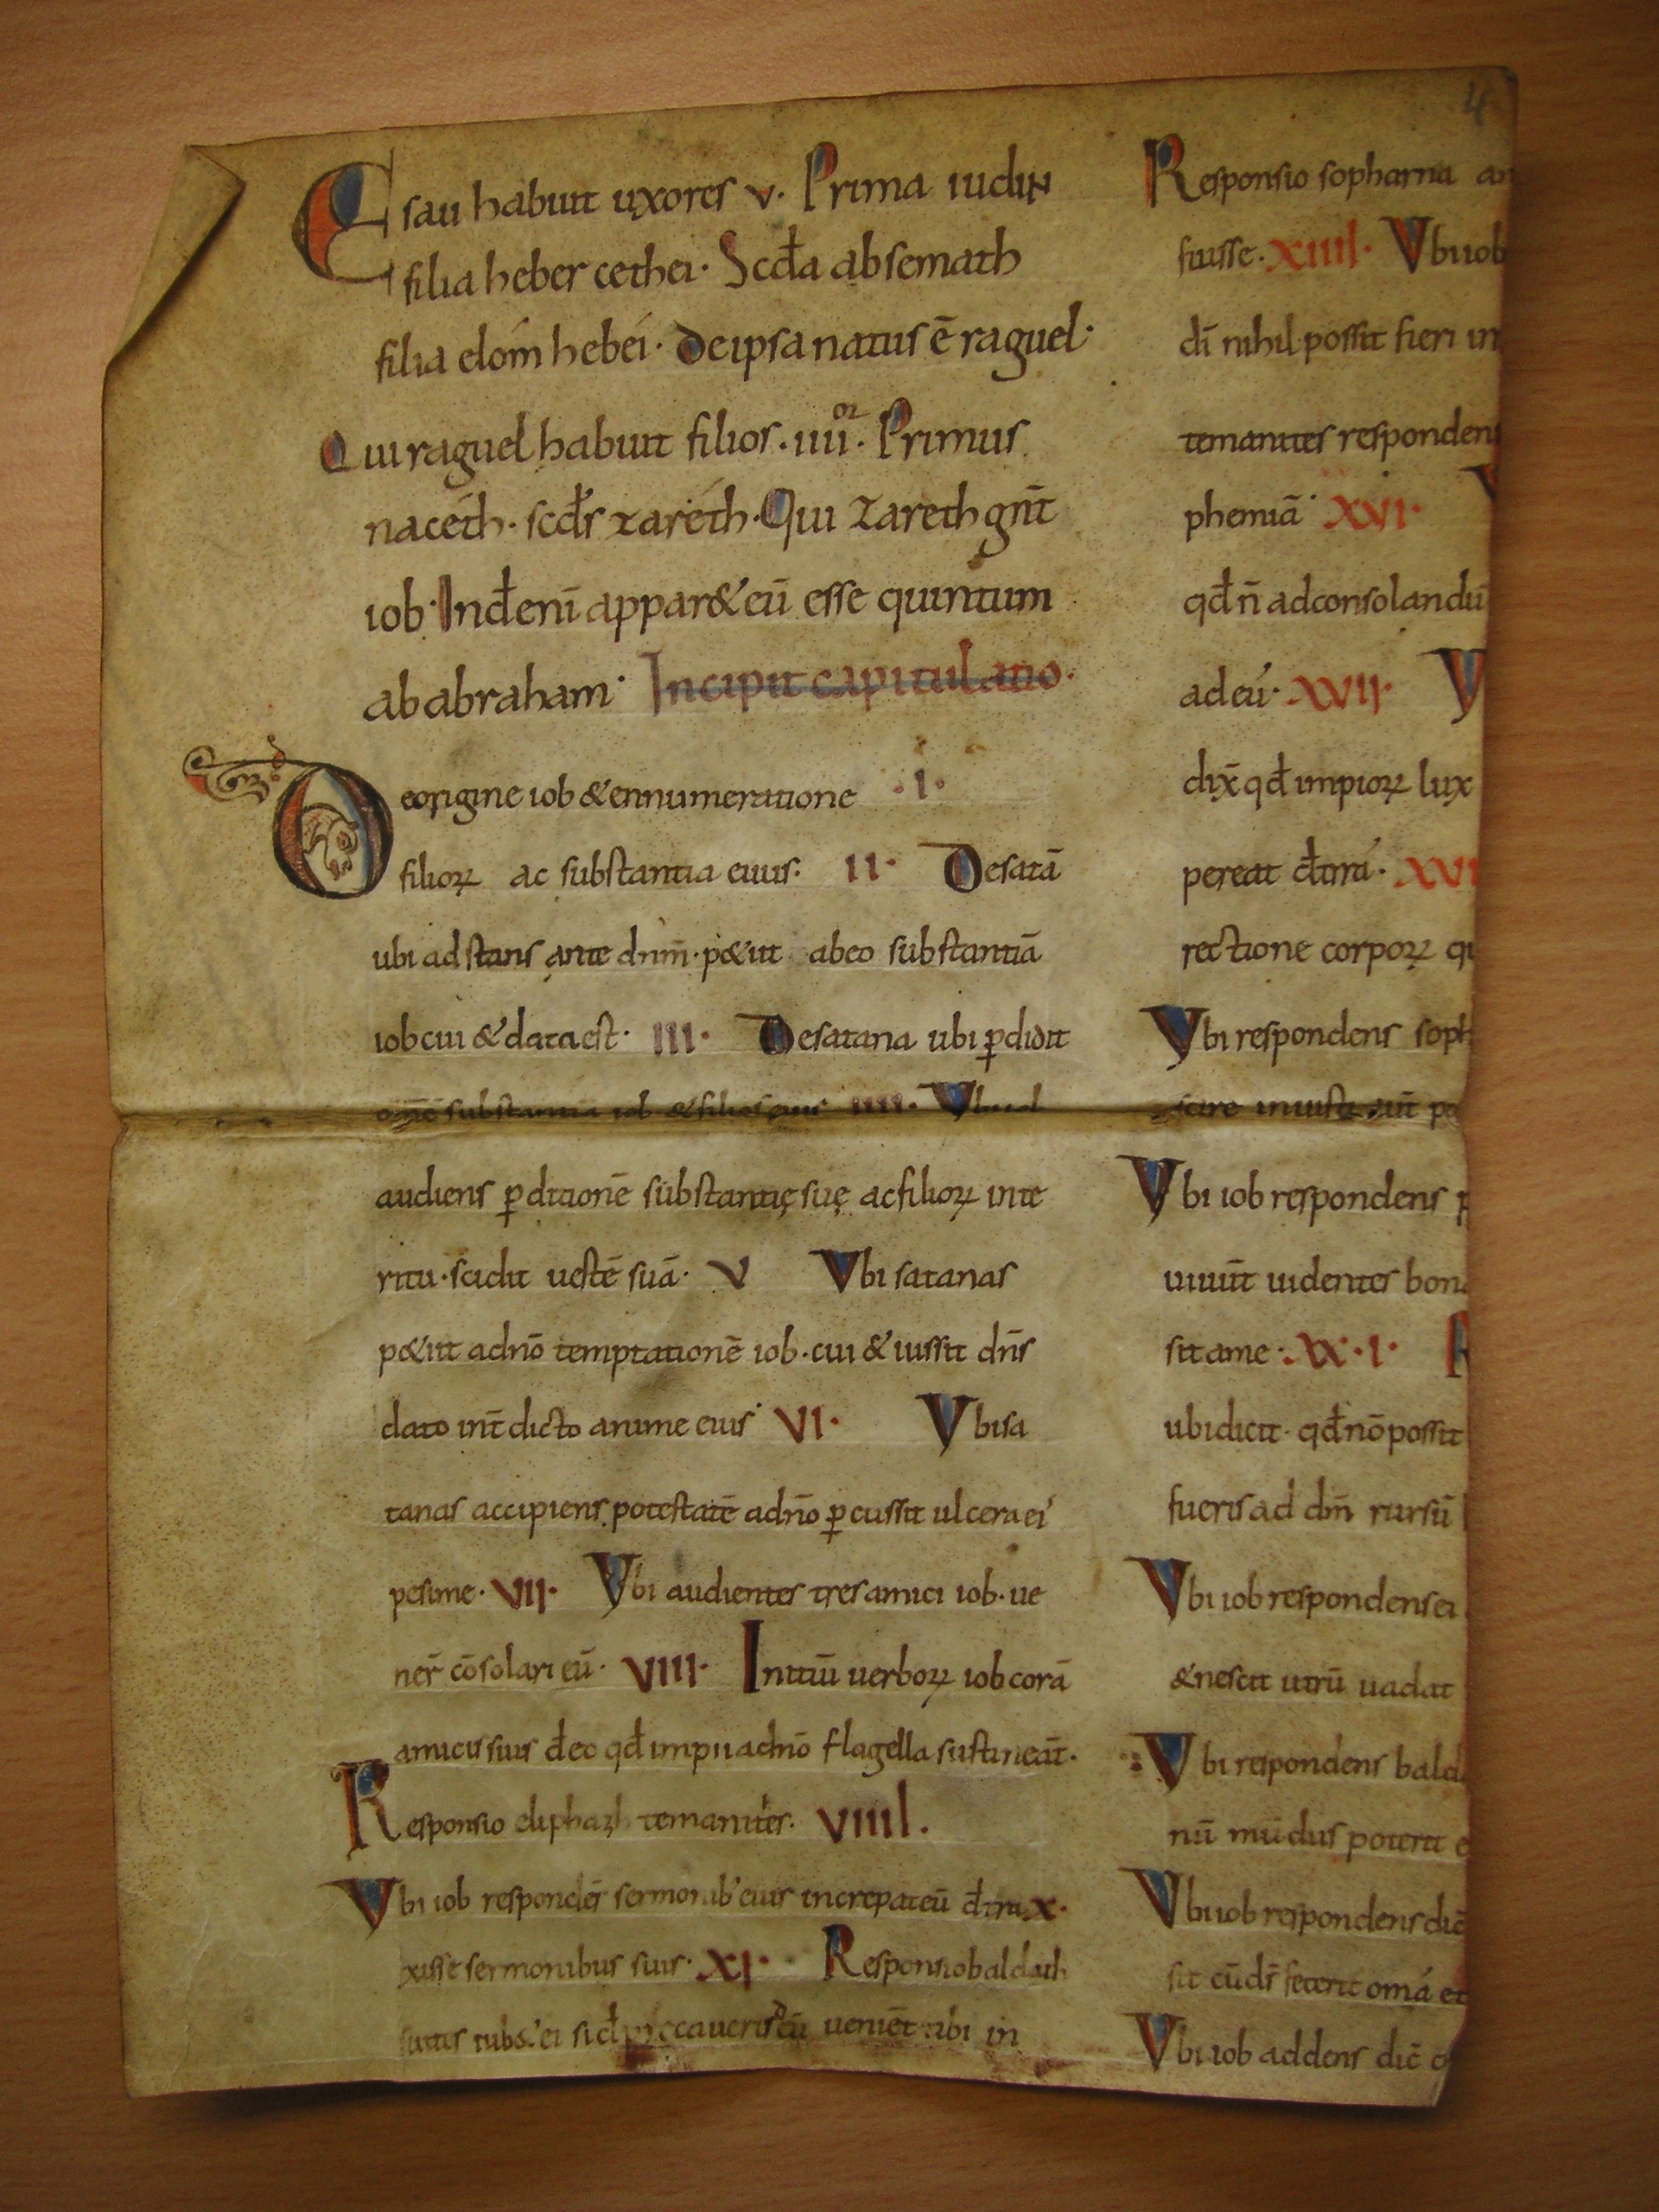 Esau habuit uxores v. Prima iudin
filia heber cethei. Scđa absemath
filia elom hebei. De ipsa natus ē raguel.
Qui raguel habuit filios. iiii or. Primus
naceth. scđs zareth. Qui zareth gn̄t
iob. Inđ enī appar& eū esse quintum
ab abraham. Incipit capitulatio.
De origine iob & ennumeratione .I.
filioꝝ ac substantia eius. II. De satā
ubi adstans ante dnm̄. p&iit ab eo substantiā
iob cui & data est. III. De satana ubi ꝑdidit
substantia iob & filios eius IIII. Vbi iob
audiens ꝑditionē substantię suę ac filioꝝ inte
ritu. scidit uestē suā. V Vbi satanas
p&iit a dn̄o temptationē iob. cui & iussit dn̄s
dato int̄dicto anime eius. VI. Vbi sa
tanas accipiens potestatē a dn̄o ꝑcussit ulcera ei
pesime. VII. Vbi audientes tres amici iob. ue
ner̄ cōsolari eū. VIII. Initiū uerboꝝ iob corā
amicis suis đ eo qđ impii a dn̄o flagella sustineāt.
Responsio eliphaz temanites. VIIII.
Vbi iob respondēs sermonib' eius increpat eū đ ira X.
xisse sermonibus suis. XI. Responsio baldath
suitis ueniēt tibi in
4
Responsio sopharna an
fuisse. XIIII. Vbi iob
dī nihil possit fieri in
temanites responden
phemiā. XXVI. V
qđ n̄ ad consolandū
ad eū. XXVII. V
dix̄ qđ impioꝝ lux
pereat đ tra. XXVI
rectione corpoꝝ qu
Vbi respondens soph
Vbi iob respondens p
uiuūt uidentes bona
sit a me. XX.I. R
ubi dicit. qđ nō possit
fueris ad dm̄ rursū
Vbi iob respondens ei
& nescit utrū uadat
Vbi respondens balda
nū mūdus poterit e
Vbi iob respondens dic̄
sit cū dś fecerit omā et
Vbi iob addens dic̄